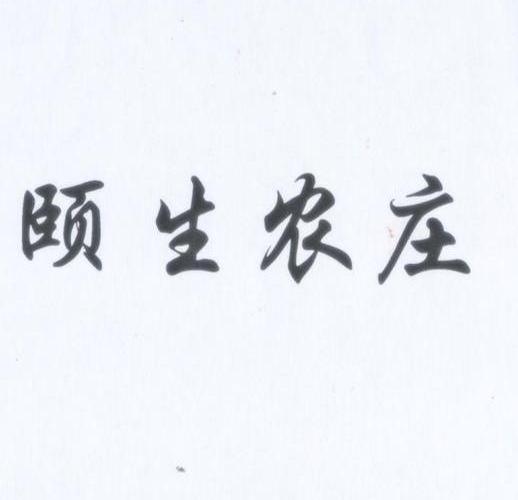 颐生农庄